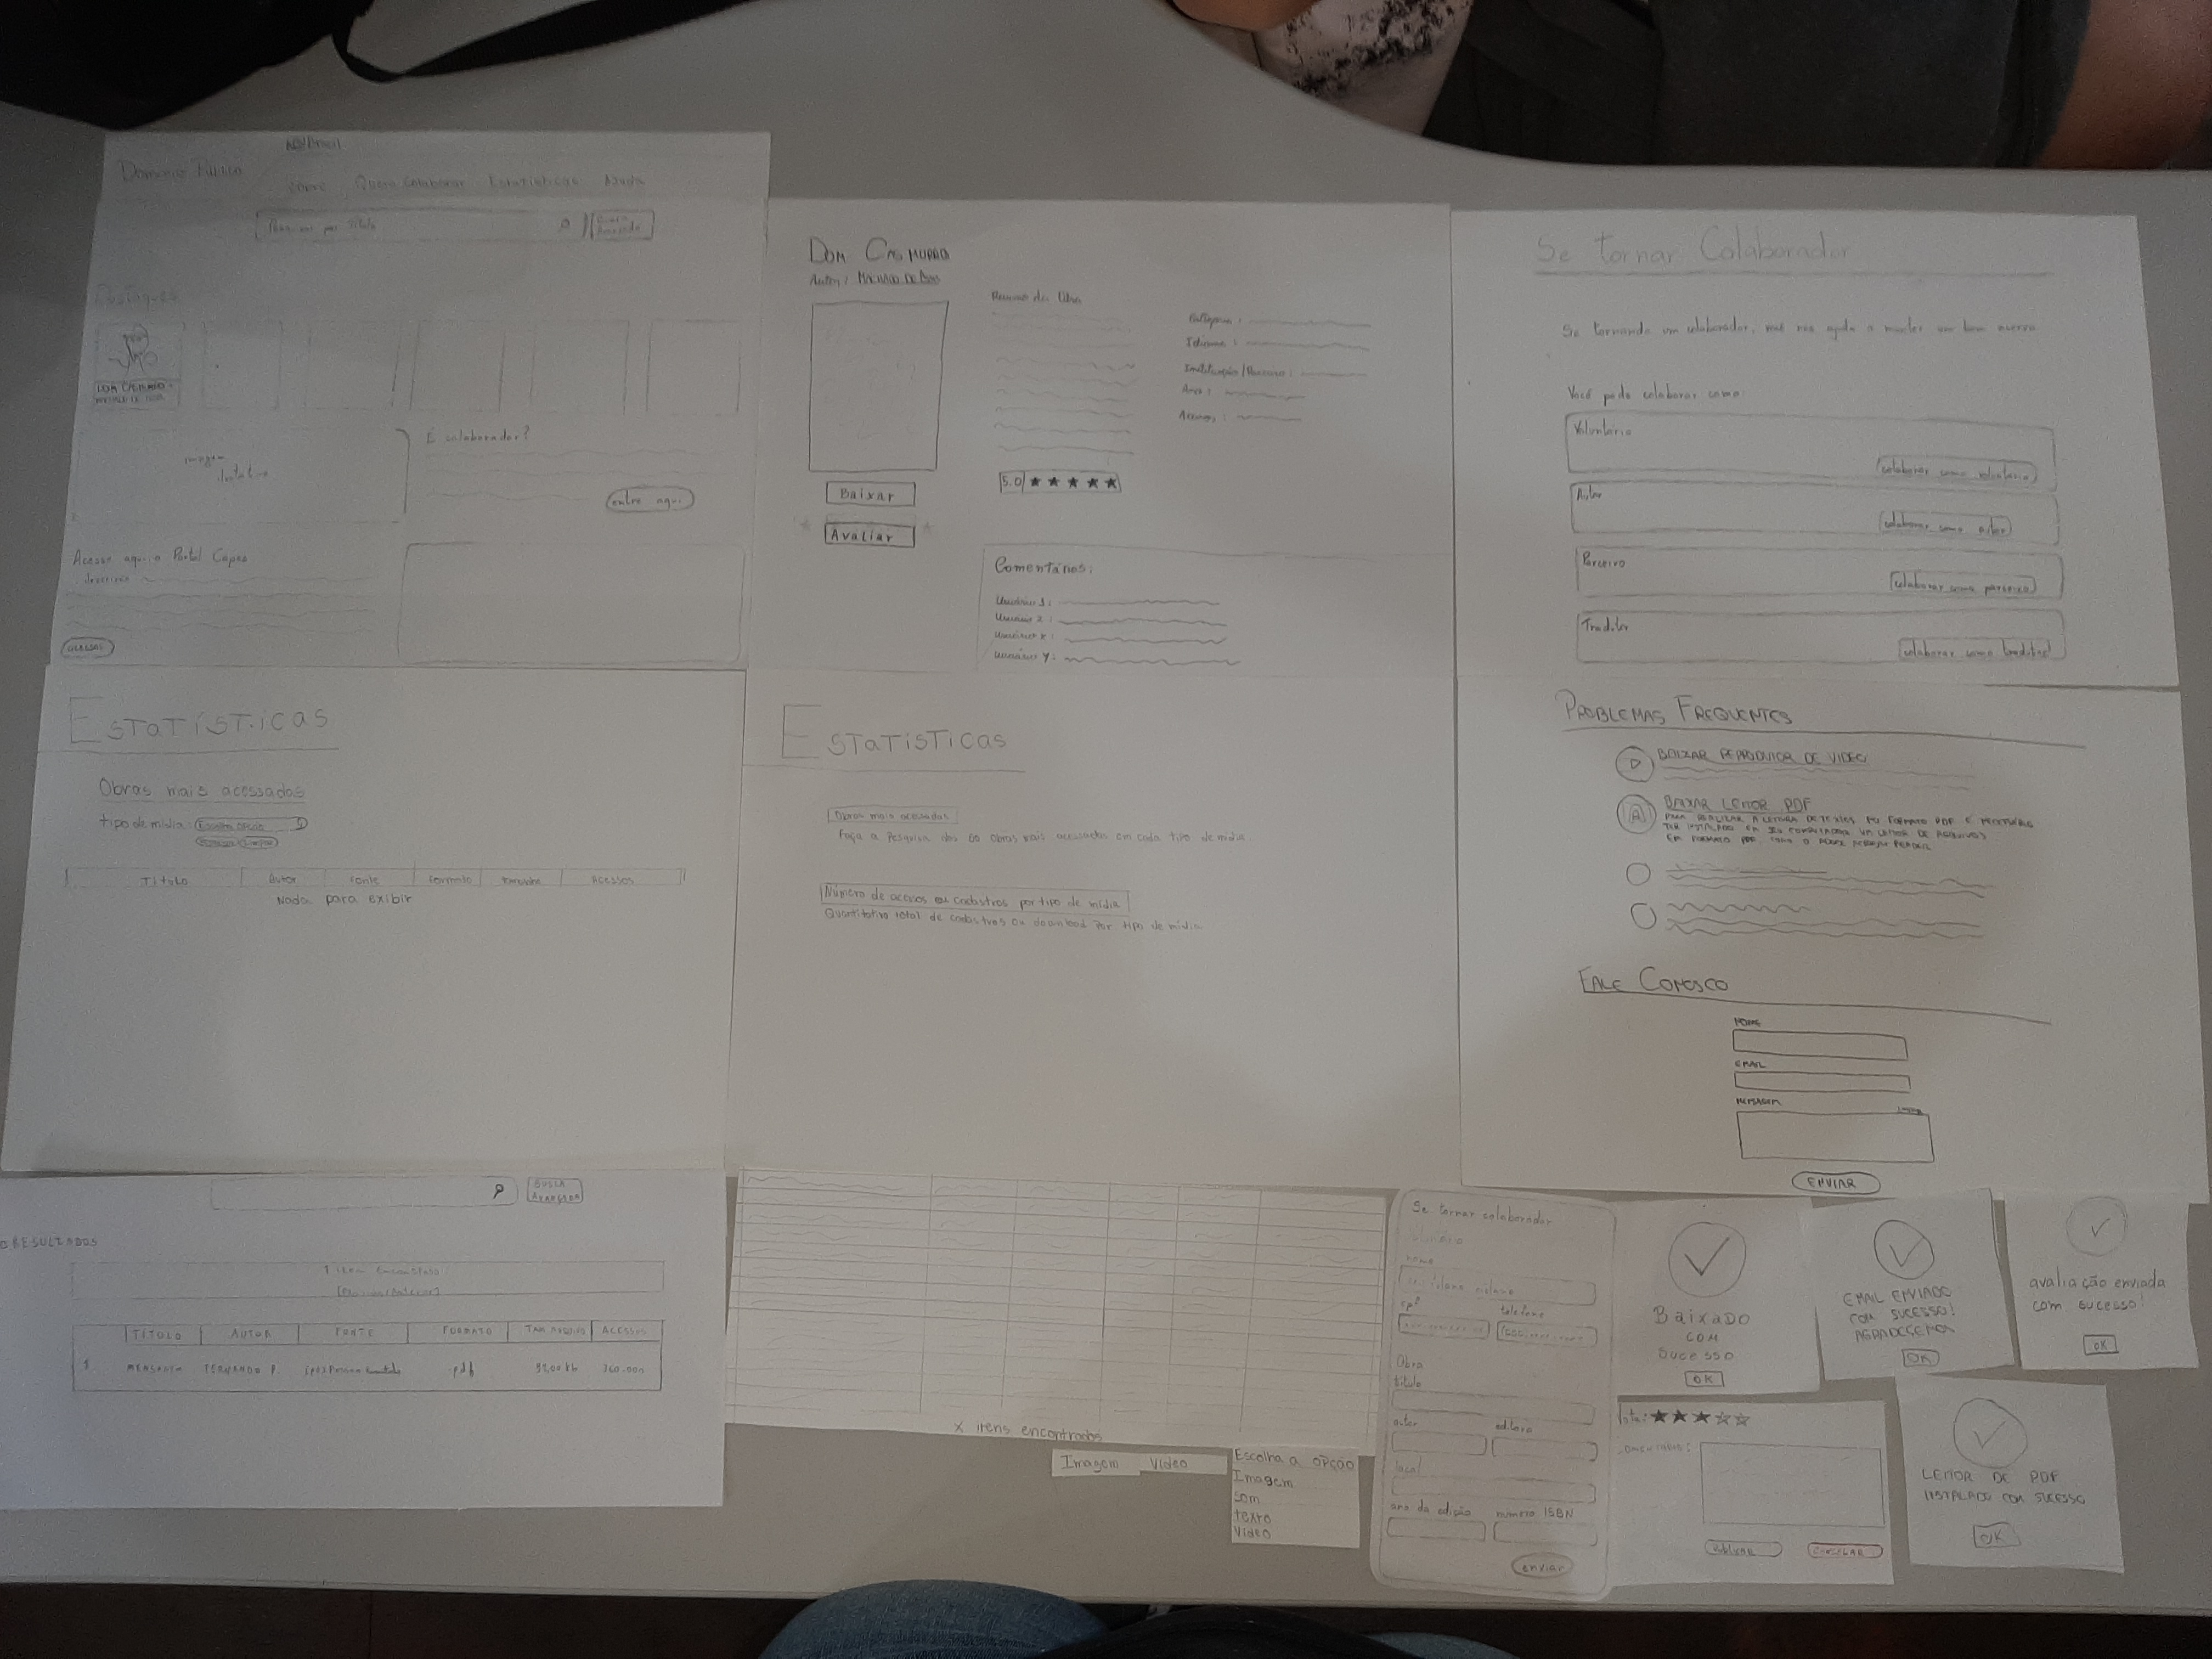 Dominio Público
Quero Colaborar Estatísticas Ajuda
por título
Destaques
DOM CASMURRO -
É colaborador?
imagem
entre aqui
Acesse aqui o Portal Capes
descrição
acessar
DOM CASMURRO
Autor: MACHADO DE ASSIS
Resumo da Obra
Categoria:
Idioma:
Instituição/Parceiro:
Ano:
Acessos:
5.0 ★ ★ ★ ★ ★
Baixar
Avaliar
Comentários:
Usuário 1:
Usuário 2:
Usuário X:
Usuário Y:
Se tornar Colaborador
Se tornando um colaborador, você nos ajuda a manter um bom acervo
Você pode colaborar como:
Voluntário
colaborar como voluntário
Autor
colaborar como autor
Parceiro
colaborar como parceiro
Tradutor
colaborar como tradutor
Estatísticas
Obras mais acessadas
tipo de mídia: Escolha opção
Título Autor fonte formato tamanho Acessos
Nada para exibir
Estatísticas
Obras mais acessadas
Faça a Pesquisa das 60 obras mais acessadas em cada tipo de mídia
Número de acessos ou cadastros por tipo de mídia
Quantitativo total de cadastros ou download por tipo de mídia
PROBLEMAS FREQUENTES
BAIXAR REPRODUTOR DE VIDEO
BAIXAR LEITOR PDF
PARA REALIZAR A LEITURA DE TEXTOS NO FORMATO PDF É NECESSÁRIO
TER INSTALADO EM SEU COMPUTADOR UM LEITOR DE ARQUIVOS
EM FORMATO PDF, COMO O ADOBE ACROBAT READER
FALE CONOSCO
NOME
EMAIL
MENSAGEM
ENVIAR
BUSCA
AVANÇADA
RESULTADOS
1 item Encontrado
TÍTULO AUTOR FONTE FORMATO TAMANHO ACESSOS
1 MENSAGEM FERNANDO P. .pdf
X itens encontrados
Imagem
Vídeo
Escolha a opção
Imagem
Som
texto
Vídeo
Se tornar colaborador
nome
cpf telefone
Obra
título
autor editora
local
ano da edição número ISBN
enviar
Baixado
com
sucesso
OK
EMAIL ENVIADO
COM SUCESSO!
OK
avaliação enviada
com sucesso!
OK
Nota: ★ ★ ★ ☆ ☆
COMENTÁRIO:
PUBLICAR CANCELAR
LEITOR DE PDF
INSTALADO COM SUCESSO
OK